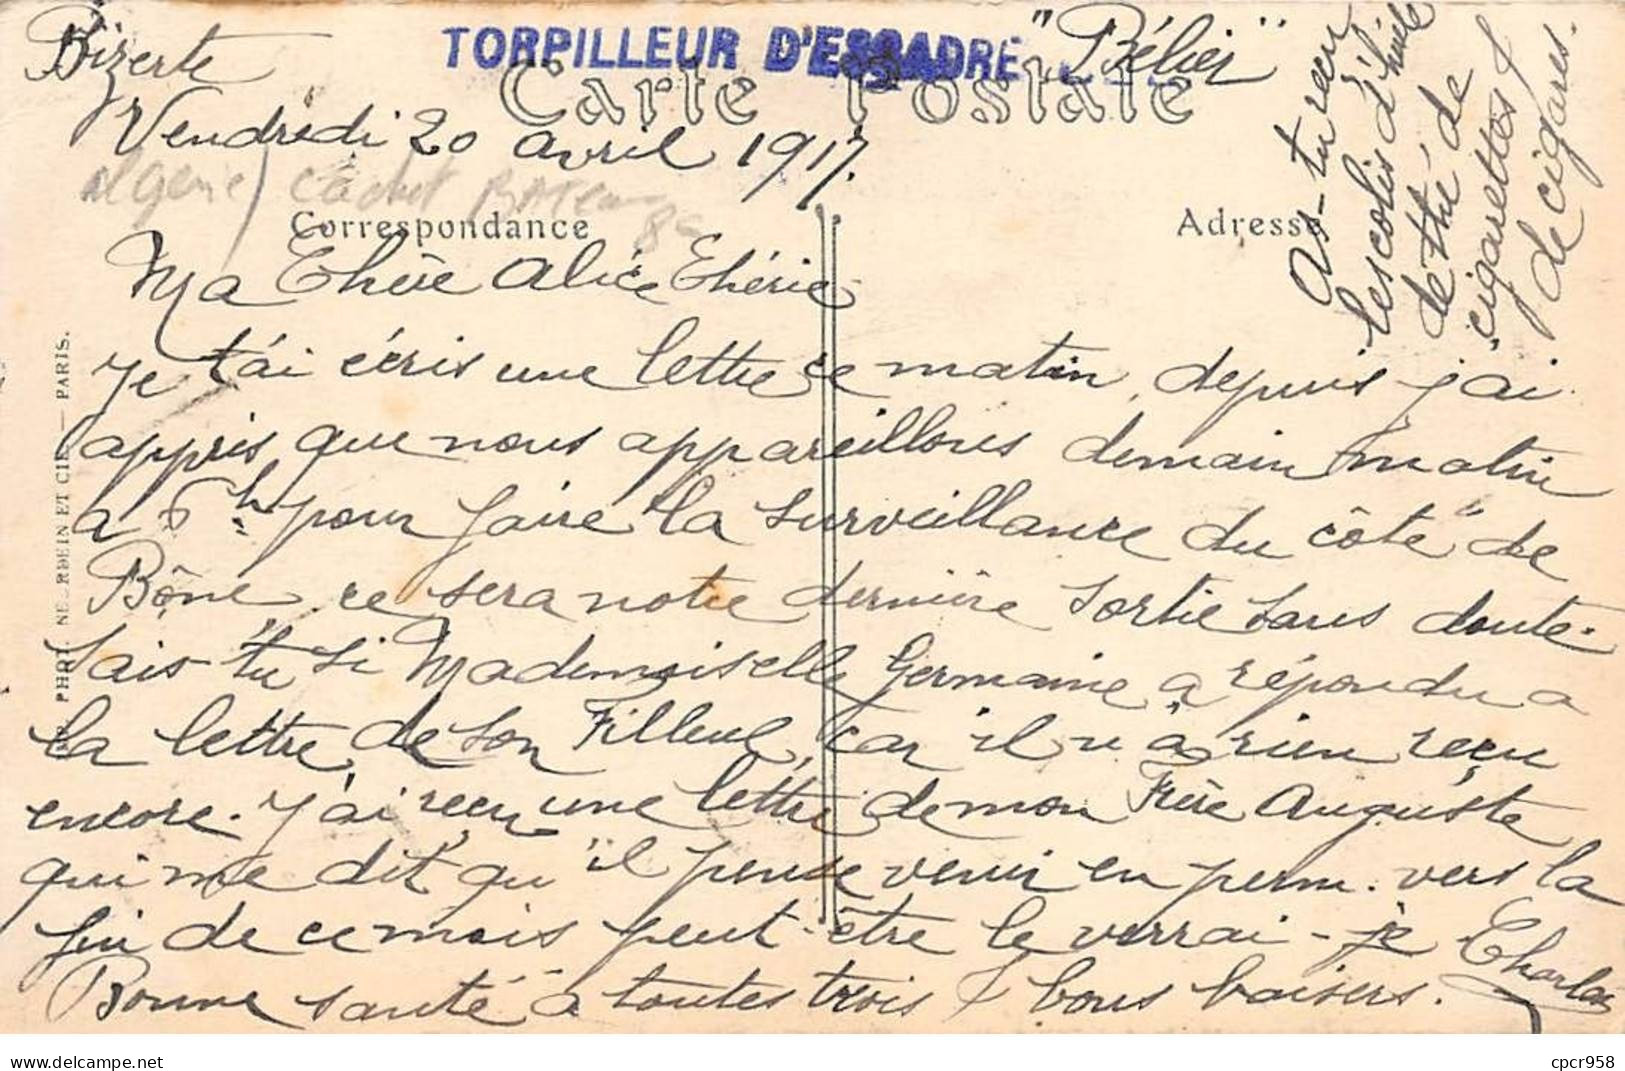 TORPILLEUR D'ESCADRE "Bélier"
Carte Postale
Bizerte
Vendredi 20 avril 1917.
Algerie) cachet BATEAU
Correspondance
Adresse
As-tu reçu
les colis d'huile
de thé, de
cigarettes &
de cigares.
Ma Chère Alice Chérie
Je t'ai écris une lettre ce matin, depuis j'ai
appris que nous appareillons demain matin
a 6h pour faire la surveillance du côté de
Bône, ce sera notre dernière sortie sans doute.
Sais-tu si Mademoiselle Germaine a répondu a
la lettre de son Filleul, car il n'a rien reçu
encore. J'ai reçu une lettre de mon Frère Auguste
qui me dit qu'il pense venir en perm. vers la
fin de ce mois peut-être le verrai-je
Bonne santé à toutes trois & bons baisers. Charles
PHOT. NEURDEIN ET CIE — PARIS.
cpcr958